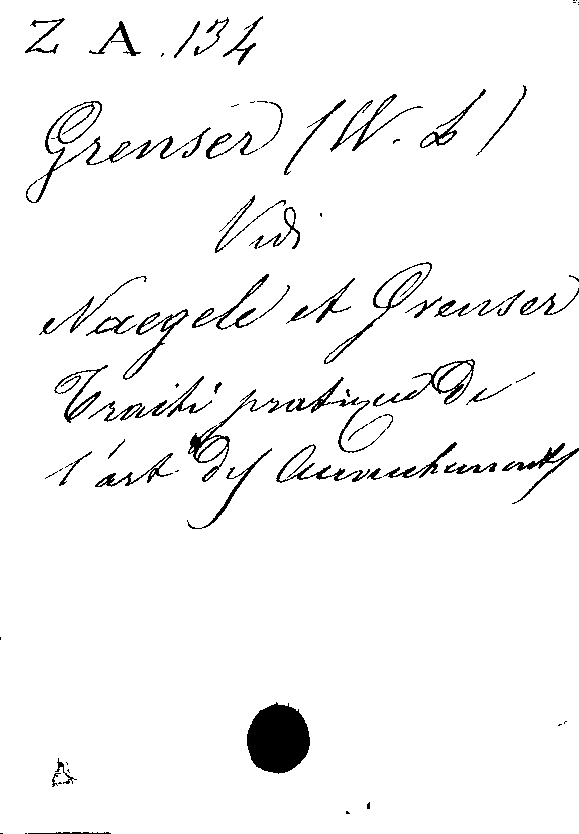 Z A .134
Grenser (W. L)
Vidi
Naegele et Grenser
Traité pratique de
l'art des accouchements